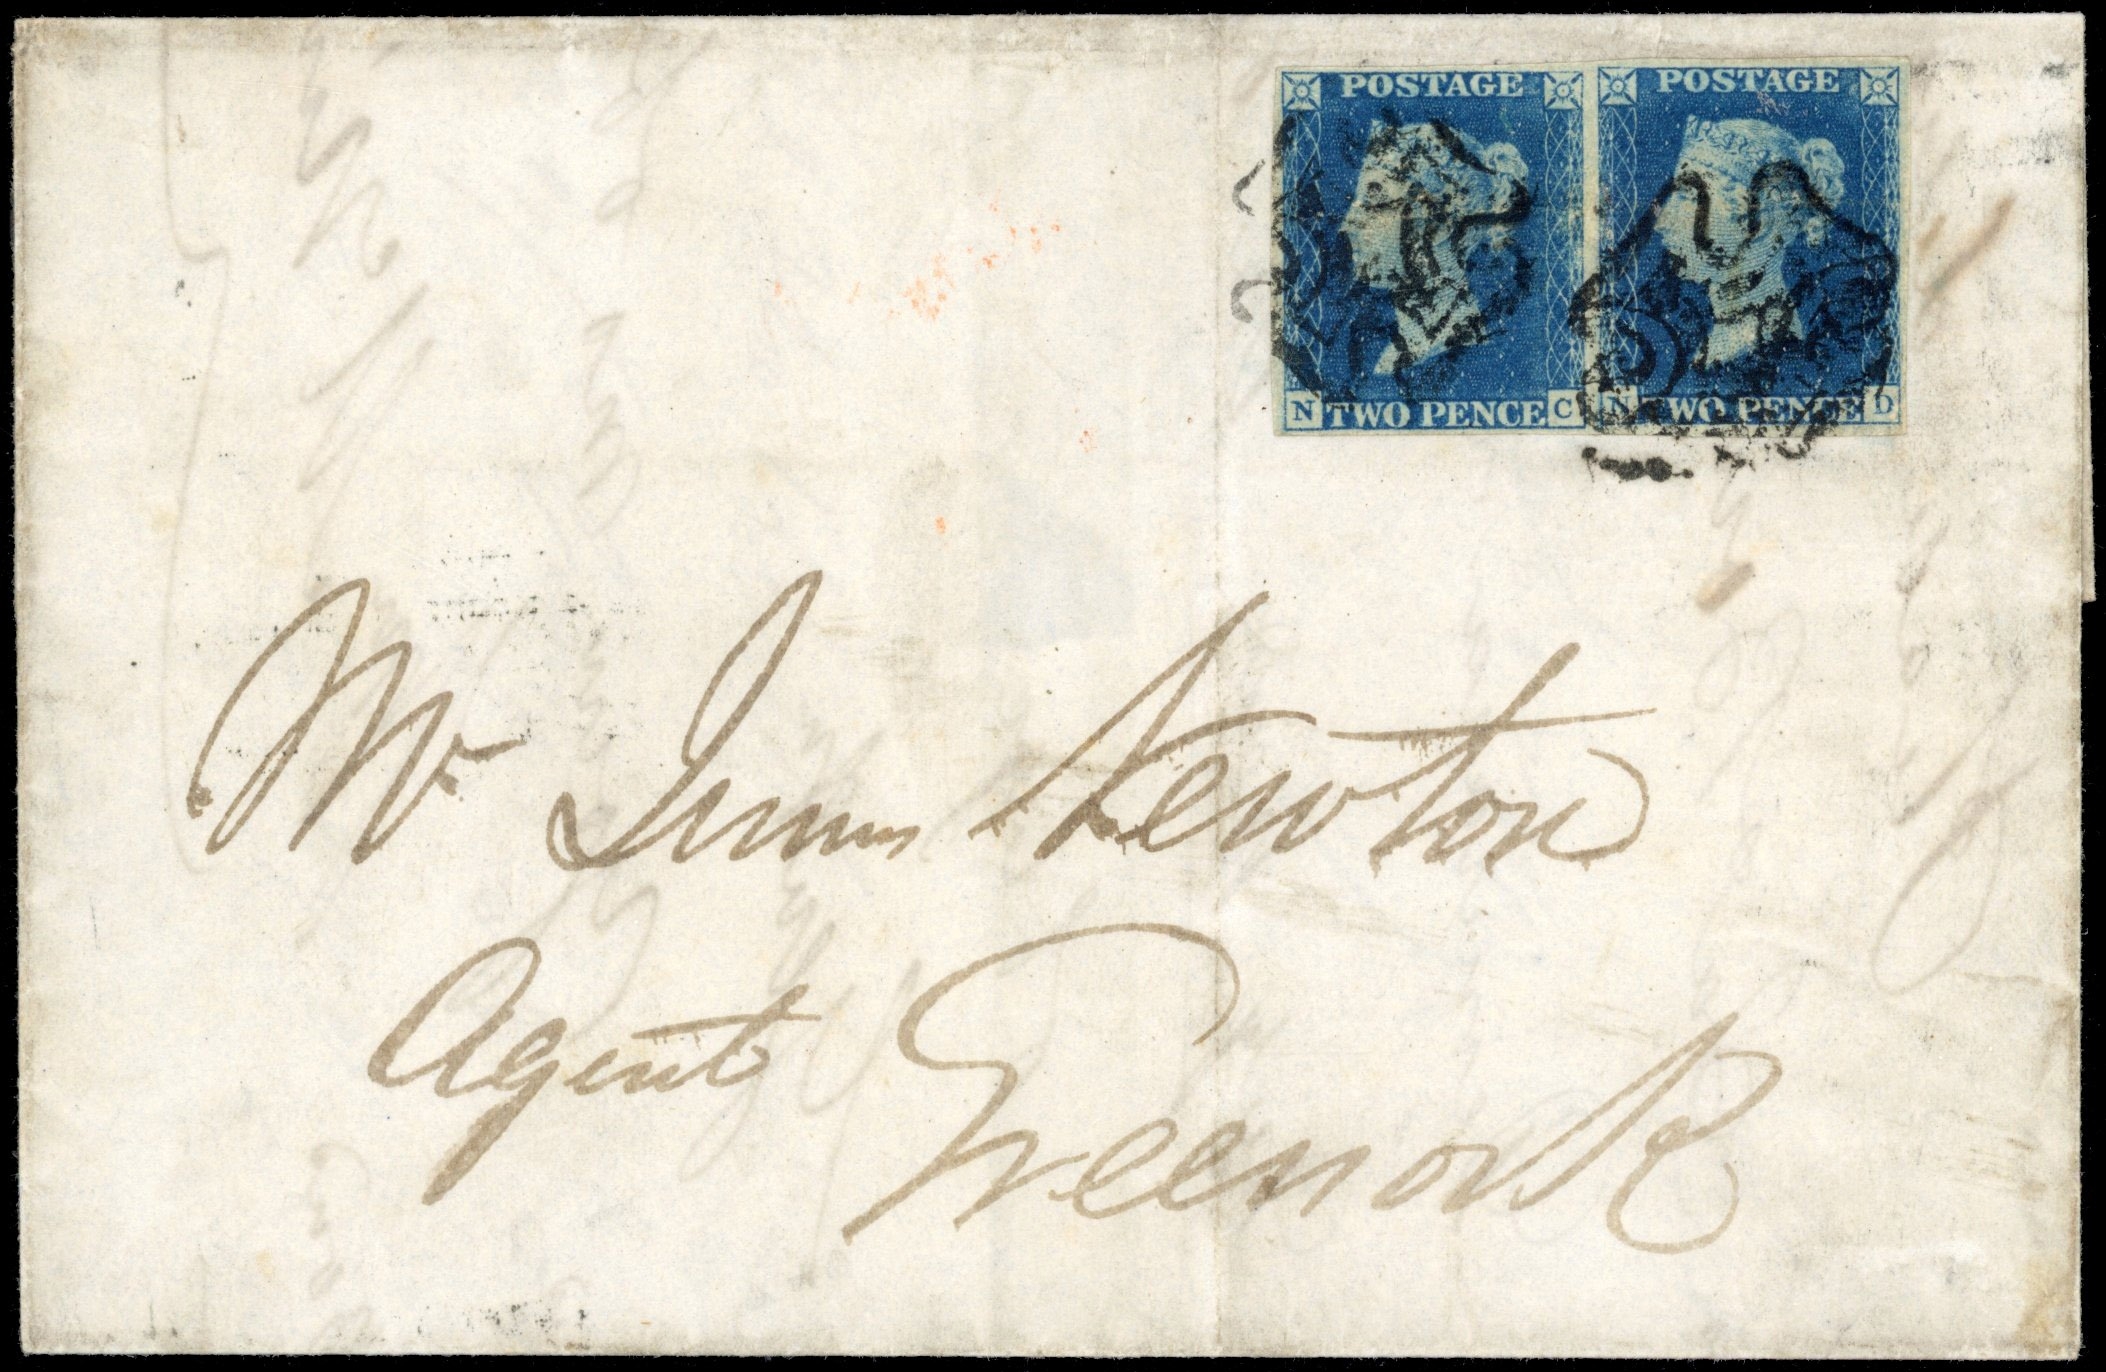 POSTAGE POSTAGE
N TWO PENCE C N TWO PENCE D
Mr Newton
Agent
Greenock